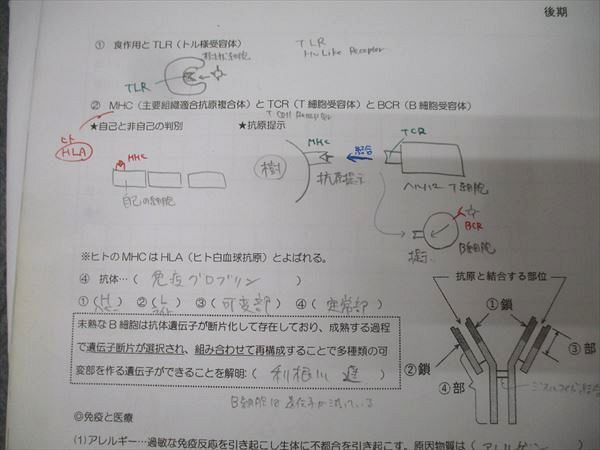 後期
① 食作用とTLR(トル様受容体)
TLR
Like Receptor
TLR
② MHC(主要組織適合抗原複合体)とTCR(T細胞受容体)とBCR(B細胞受容体)
T cell Receptor
★自己と非自己の判別 ★抗原提示
ヒト
HLA
MHC
自己の細胞
MHC
樹
抗原提示
結合
TCR
ヘルパーT細胞
BCR
B細胞
提示
※ヒトのMHCはHLA(ヒト白血球抗原)とよばれる。
④ 抗体…( 免疫グロブリン )
①(H) ②(L) ③(可変部) ④(定常部)
ヘビー ライト
未熟なB細胞は抗体遺伝子が断片化して存在しており、成熟する過程
で遺伝子断片が選択され、組み合わせて再構成することで多種類の可
変部を作る遺伝子ができることを解明:( 利根川 進 )
B細胞は遺伝子が減っている
抗原と結合する部位
①鎖
②鎖
③部
④部
ジスルフィド結合
◎免疫と医療
(1)アレルギー…過敏な免疫反応を引き起こし生体に不都合を引き起こす。原因物質は(アレルゲン)